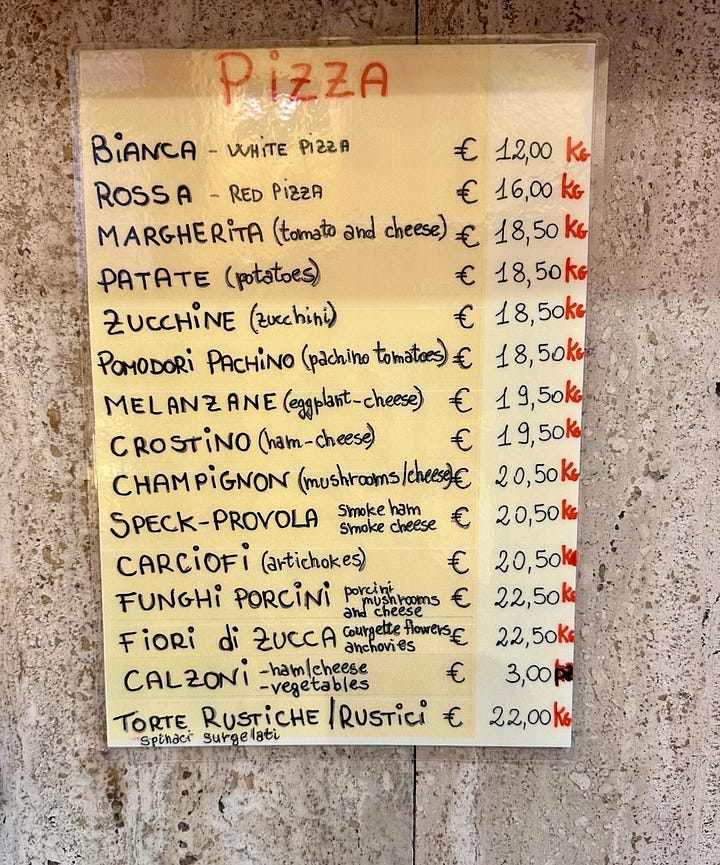 PiZZA
BiANCA - WHITE PiZZA € 12,00 KG
ROSSA - RED PiZZA € 16,00 KG
MARGHERiTA (tomato and cheese) € 18,50 KG
PATATE (potatoes) € 18,50 KG
ZUCCHiNE (zucchini) € 18,50 KG
POMODORi PACHiNO (pachino tomatoes) € 18,50 KG
MELANZANE (eggplant-cheese) € 19,50 KG
CROSTiNO (ham-cheese) € 19,50 KG
CHAMPiGNON (mushrooms/cheese) € 20,50 KG
SPECK-PROVOLA Smoke ham € 20,50 KG
smoke cheese
CARCiOFi (artichokes) € 20,50 KG
FUNGHi PORCiNi porcini € 22,50 KG
mushrooms
and cheese
FiORi di ZUCCA courgette flowers € 22,50 KG
anchovies
CALZONi -ham/cheese € 3,00 PZ
-vegetables
TORTE RUSTiCHE/RUSTiCi € 22,00 KG
spinaci surgelati